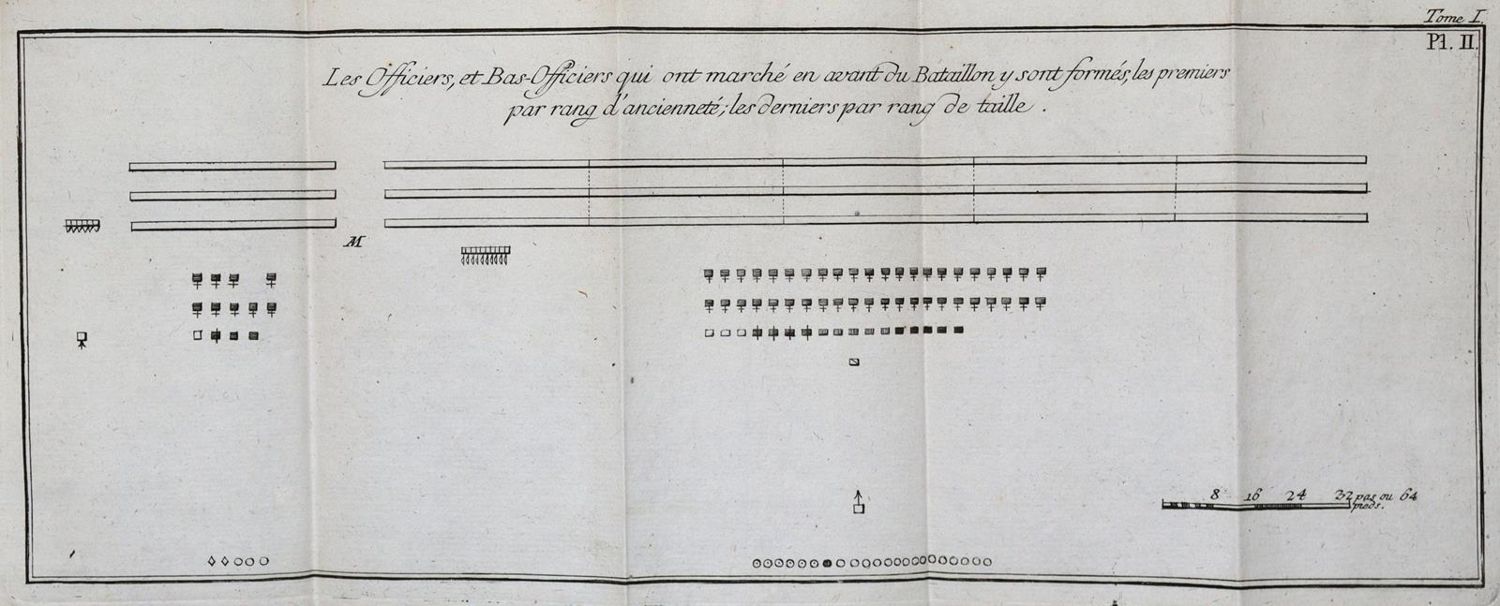 Tome I.
Pl. II.
Les Officiers, et Bas-Officiers qui ont marché en avant du Bataillon y sont formés, les premiers
par rang d'ancienneté; les derniers par rang de taille.
M
8 16 24 32 pas ou 64
pieds.